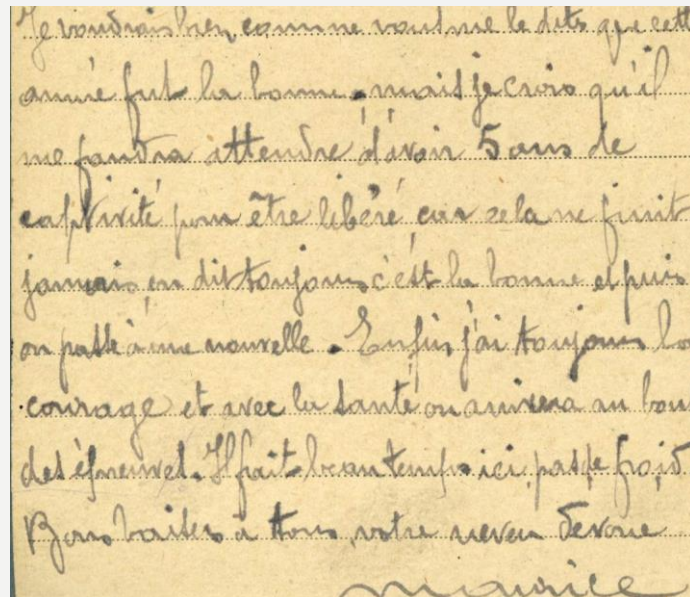 Je voudrais bien, comme vous me le dits que cette
année fut la bonne, mais je crois qu'il
me faudra attendre d'avoir 5 ans de
captivité pour être libéré, car cela ne finit
jamais, on dit toujours c'est la bonne et puis
on passe à une nouvelle. Enfin, j'ai toujours bo
courage et avec la santé on arrivera au bou
des épreuves. Il fait beau temps ici, pas de froid
Bons baisers à tous, votre neveu devoue
Maurice